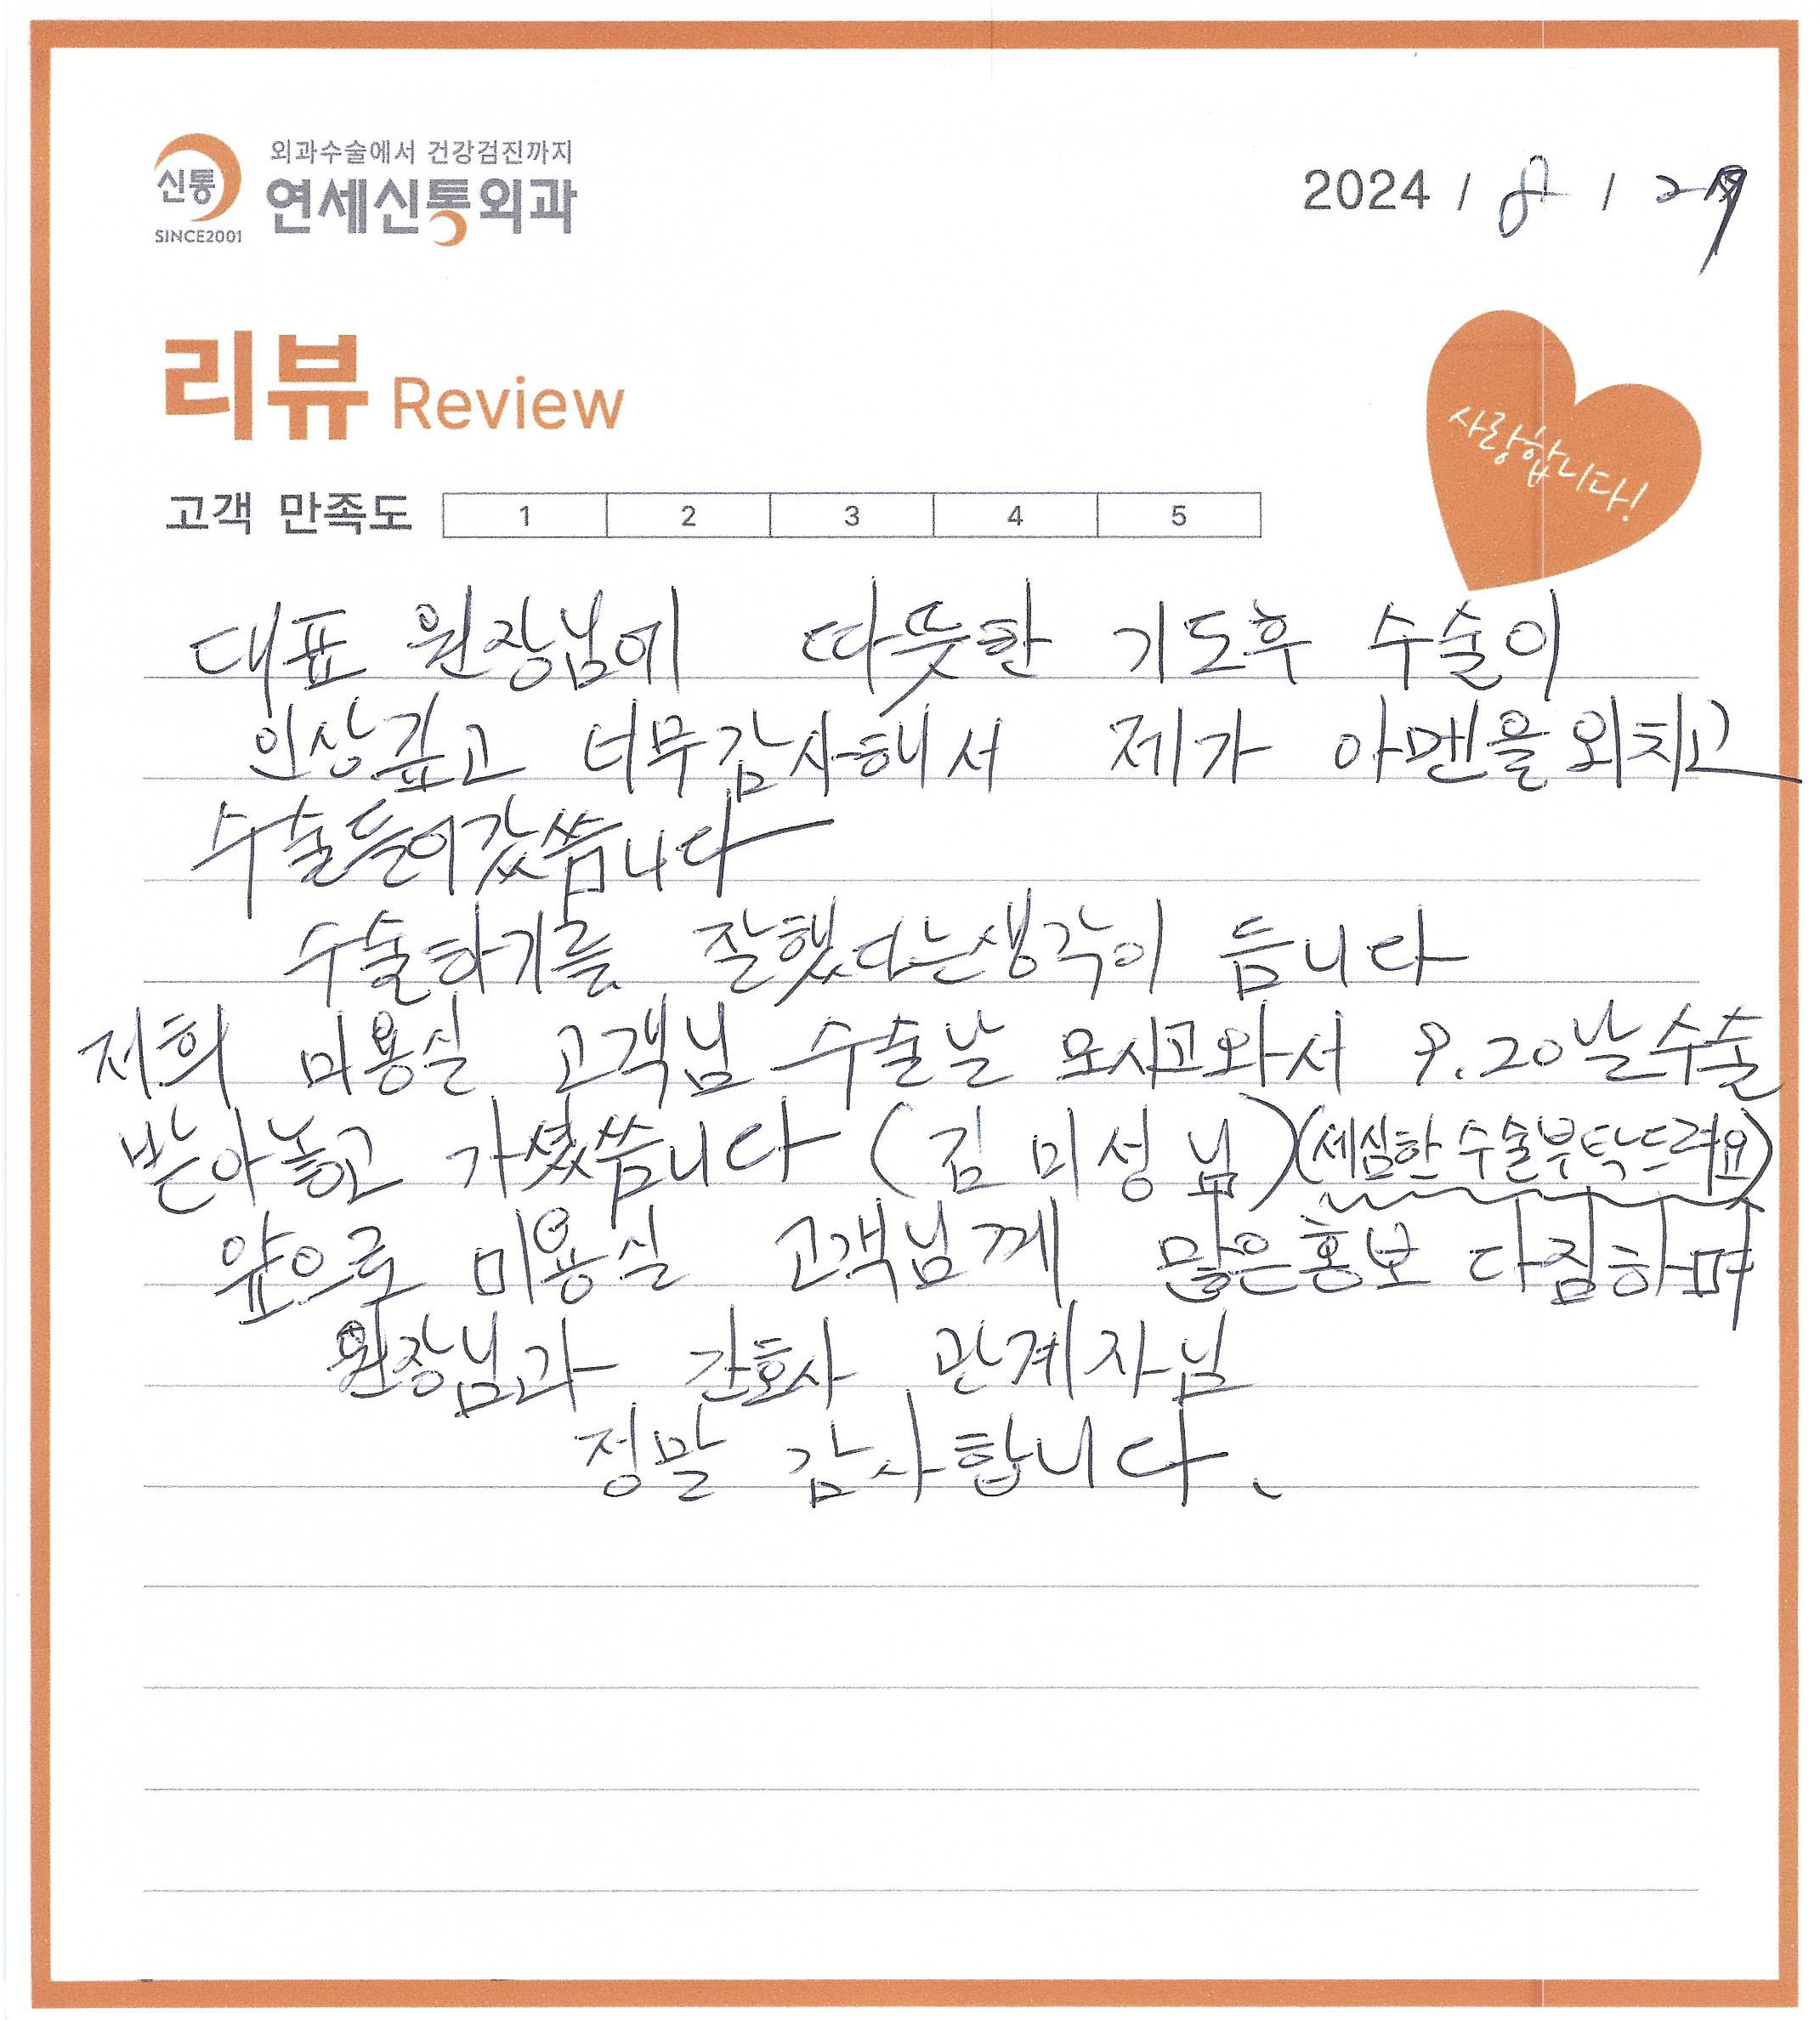 신통
SINCE2001
외과수술에서 건강검진까지
연세신통외과
2024 / 8 / 29
리뷰 Review
사랑합니다!
고객 만족도 1 2 3 4 5
대표 원장님에 따뜻한 기도후 수술이
인상깊고 너무감사해서 제가 아멘을외치고
수술들어갔씁니다
수술하기를 잘했다는생각이 듭니다
저희 미용실 고객님 수술날 모시고와서 9.20날수술
받아놓고 가셨씁니다 (김미성님)(세심한 수술부탁드려요)
앞으로 미용실 고객님께 많은홍보 다짐하며
원장님과 간호사 관계자님
정말 감사합니다.